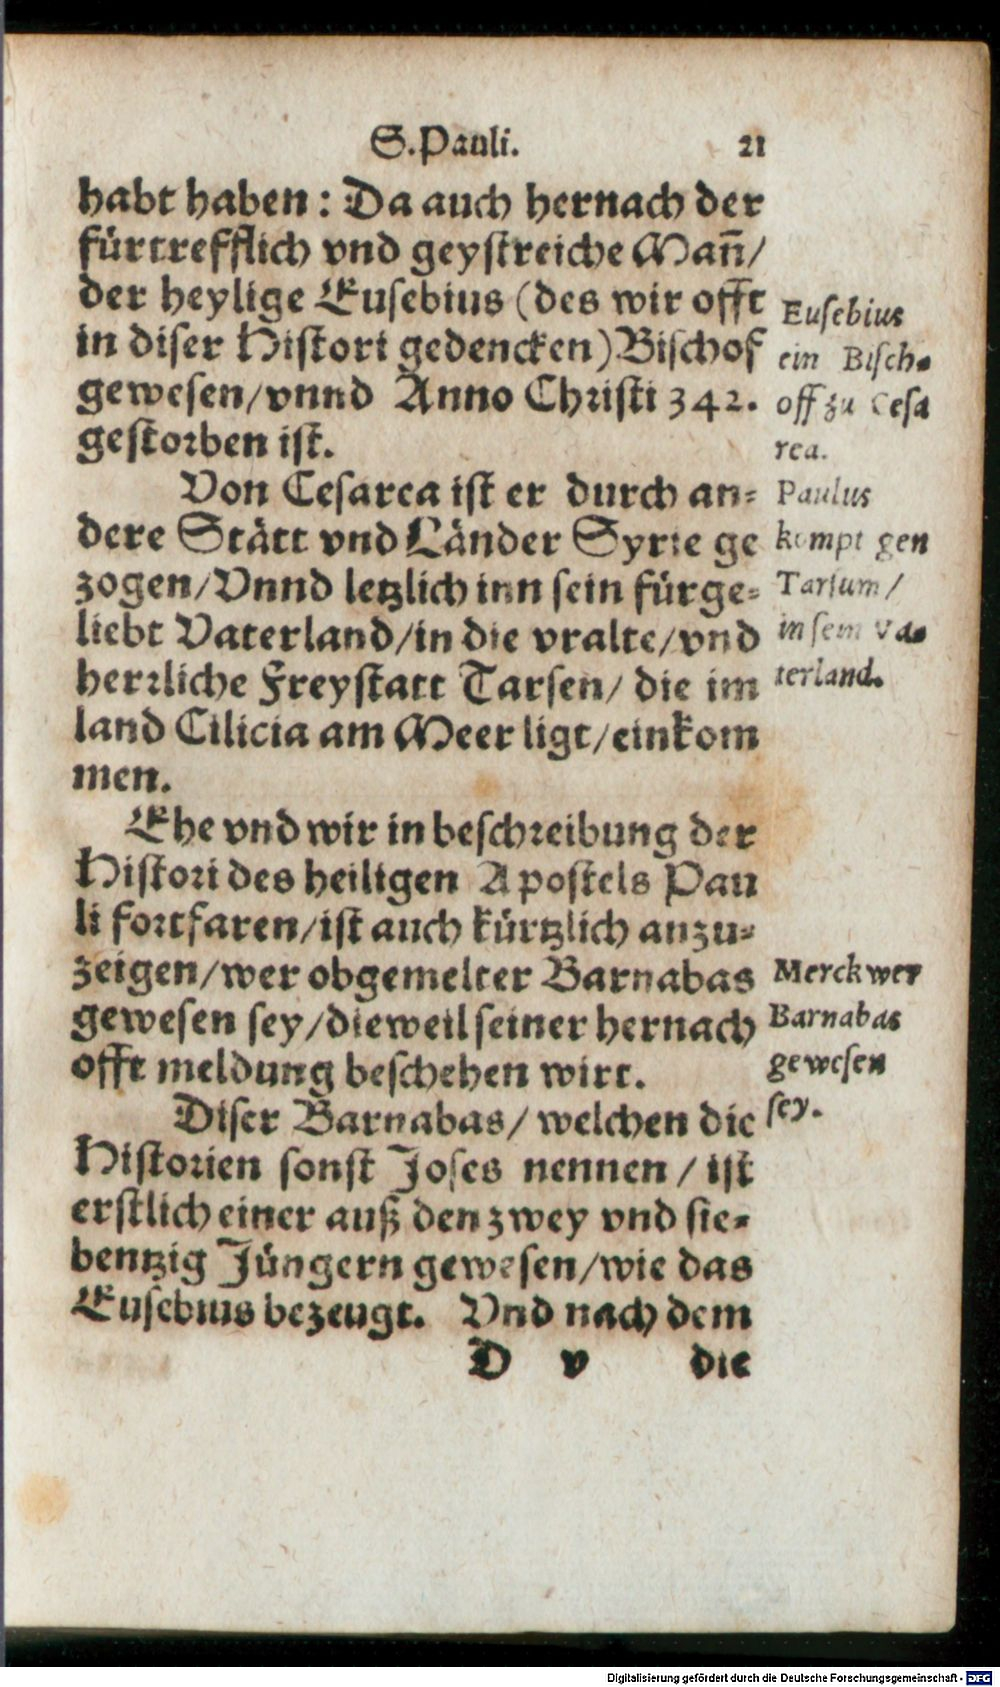 S. Pauli. 21
habt haben: Da auch hernach der
fürtrefflich vnd geystreiche Mañ/
der heylige Eusebius (des wir offt
in diser Histori gedencken) Bischof
gewesen/vnnd Anno Christi 342.
gestorben ist.
Eusebius
ein Bisch-
off zu Cesa
rea.
Von Cesarea ist er durch an-
dere Stätt vnd Länder Syrie ge
zogen/Vnnd letzlich inn sein fürge-
liebt Vaterland/in die vralte/vnd
herrliche Freystatt Tarsen/ die im
land Cilicia am Meer ligt/einkom
men.
Paulus
kompt gen
Tarsum/
in sein Va-
terland.
Ehe vnd wir in beschreibung der
Histori des heiligen Apostels Pau
li fortfaren/ist auch kürtzlich anzu-
zeigen/wer obgemelter Barnabas
gewesen sey/dieweil seiner hernach
offt meldung beschehen wirt.
Merck wer
Barnabas
gewesen
sey.
Diser Barnabas/ welchen die
Historien sonst Joses nennen/ ist
erstlich einer auß den zwey vnd sie-
bentzig Jüngern gewesen/wie das
Eusebius bezeugt. Vnd nach dem
D v die
Digitalisierung gefördert durch die Deutsche Forschungsgemeinschaft - DFG